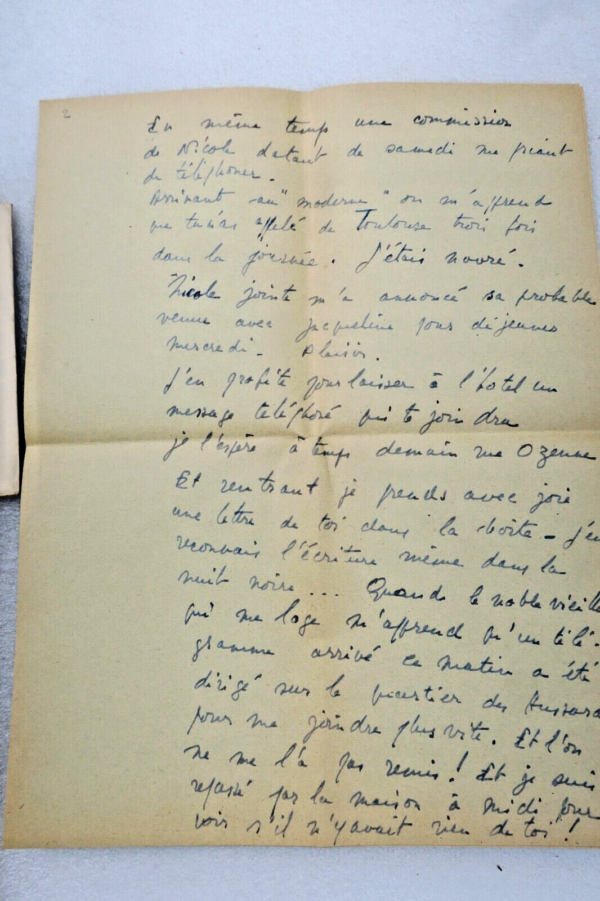 2
En même temps une commission
de Nicole datant de samedi me priant
de téléphoner.
Arrivant au "moderne" on m'apprend
que tu m'as appelé de Toulouse trois fois
dans la journée. J'étais navré.
Nicole jointe m'a annoncé sa probable
venue avec Jacqueline pour déjeuner
mercredi. Plaisir.
J'en profite pour laisser à l'hotel un
message téléphoné qui te joindra
je l'espère à temps demain rue Ozenne
Et rentrant je prends avec joie
une lettre de toi dans la boîte – j'en
reconnais l'écriture même dans la
nuit noire ... Quand la noble vieille
qui me loge m'apprend qu'un télé-
gramme arrivé ce matin a été
dirigé sur le quartier des Hussards
pour me joindre plus vite. Et l'on
ne me l'a pas remis! Et je suis
repassé par la maison à midi pour
voir s'il n'y avait rien de toi !